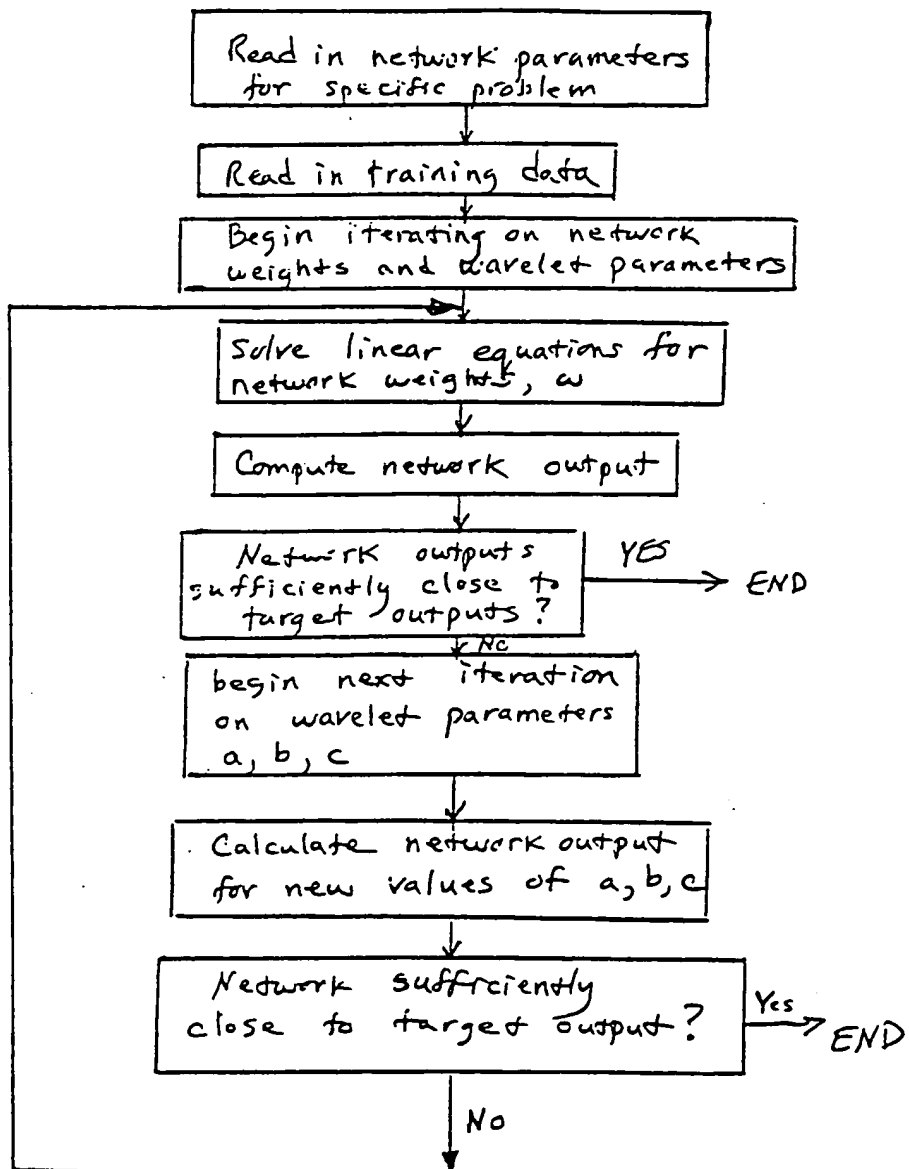 Read in network parameters
for specific problem
Read in training data
Begin iterating on network
weights and wavelet parameters
Solve linear equations for
network weights, ω
Compute network output
Network outputs
sufficiently close to
target outputs?
YES
END
No
begin next iteration
on wavelet parameters
a, b, c
Calculate network output
for new values of a, b, c
Network sufficiently
close to target output?
Yes
END
No